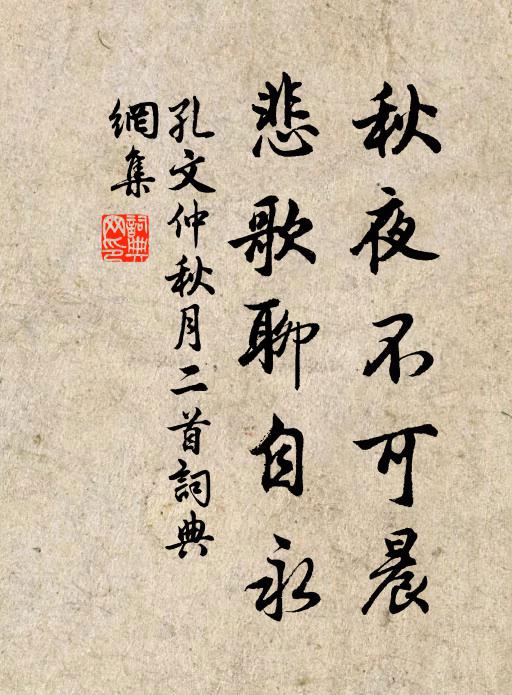 秋夜不可晨
悲歌聊自永
孔文仲秋月二首詞典
網集
詞典網印